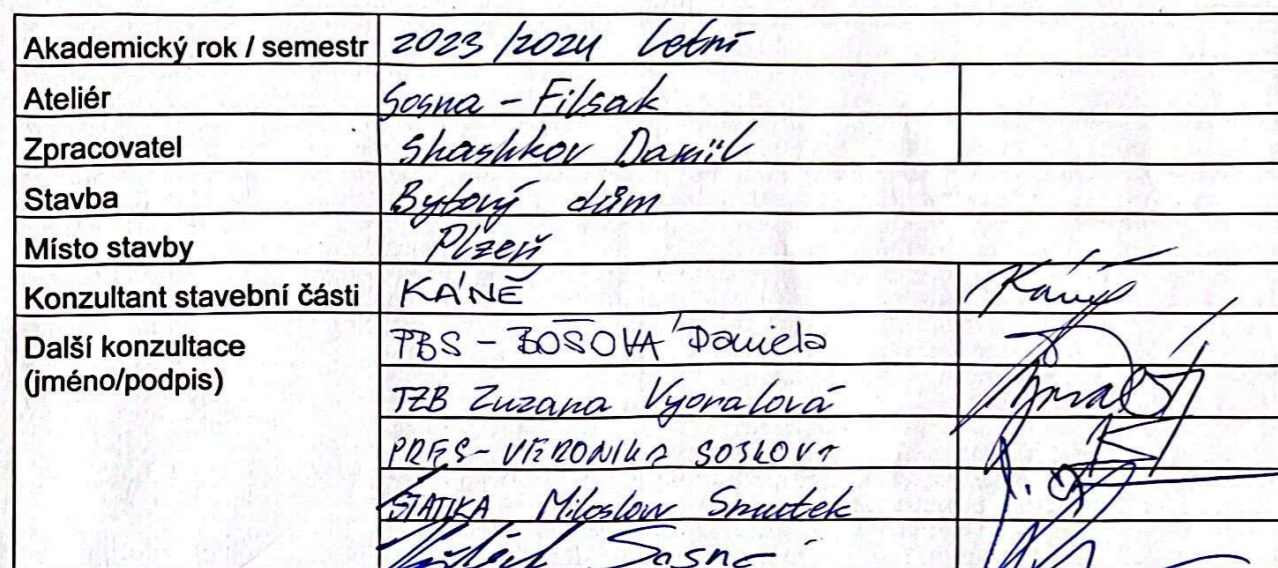 Akademický rok / semestr 2023/2024 Letní
Ateliér Sosna - Filsak
Zpracovatel Shashkov Daniil
Stavba Bytový dům
Místo stavby Plzeň
Konzultant stavební části KÁNĚ
Další konzultace PBS - BOŠOVÁ Daniela
(jméno/podpis)
TZB Zuzana Vyoralová
PRES - VERONIKA SOJKOVÁ
STATIKA Miloslav Smutek
Sosna